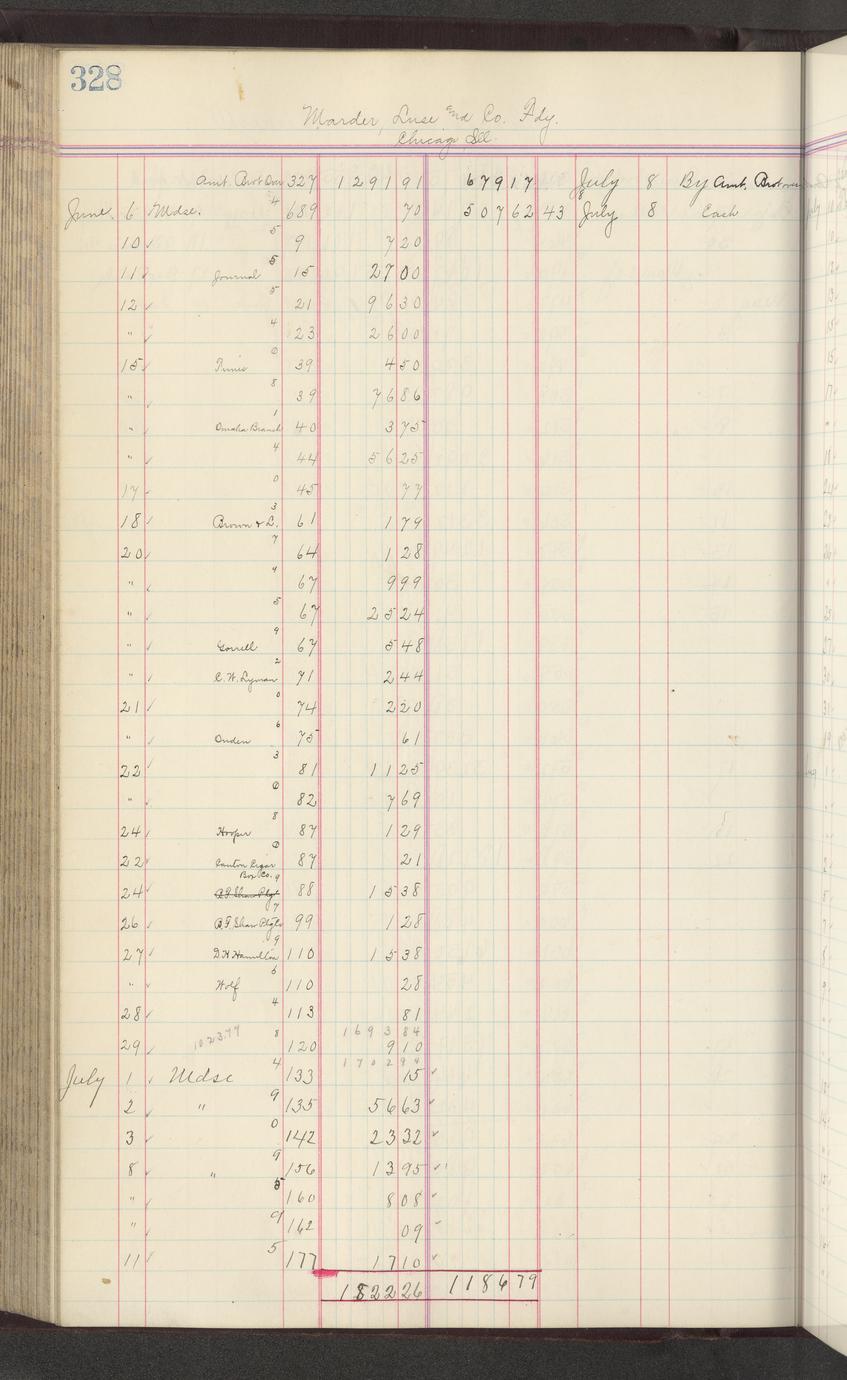 328
Marder, Luse and Co. Fdy.
Chicago Ill.
Amt. Brot Over 327 1291 91 679 17 July 8 By Amt. Brot over
June 6 Mdse. 4 689 70 507 62 43 July 8 Cash
10 ✓ 5 9 7 20
11 ✓ Journal 5 15 27 00
12 ✓ 5 21 96 30
" ✓ 4 23 26 00
15 ✓ 0 39 4 50
" ✓ 8 39 76 86
" ✓ Omaha Branch 1 40 3 75
" ✓ 4 44 56 25
17 ✓ 0 45 77
18 ✓ Brown & L. 3 61 1 79
20 ✓ 7 64 1 28
" ✓ 4 67 9 99
" ✓ 5 67 25 24
" ✓ Gorrell 9 67 5 48
" ✓ C. W. Lyman 2 71 2 44
21 ✓ 0 74 2 20
" ✓ 6 75 61
22 ✓ 3 81 11 25
" ✓ 0 82 7 69
24 ✓ Hooper 8 87 1 29
22 ✓ Canton Cigar Box Co. 0 87 21
24 ✓ B.F. Shaw Ptg 9 88 15 38
26 ✓ B.F. Shaw 7 99 1 28
27 ✓ D.H. Hamilton 9 110 15 38
" ✓ Wolf 6 110 28
28 ✓ 4 113 81
1693 84
29 ✓ 1023.77 8 120 9 10
1702 94
July 1 ✓ Mdse 4 133 15 ✓
2 ✓ " 9 135 56 63 ✓
3 ✓ 0 142 23 32 ✓
8 ✓ " 9 156 13 95 ✓
" ✓ 5 160 8 08 ✓
" ✓ 9 162 09 ✓
11 ✓ 5 177 17 10 ✓
1822 26 1186 79